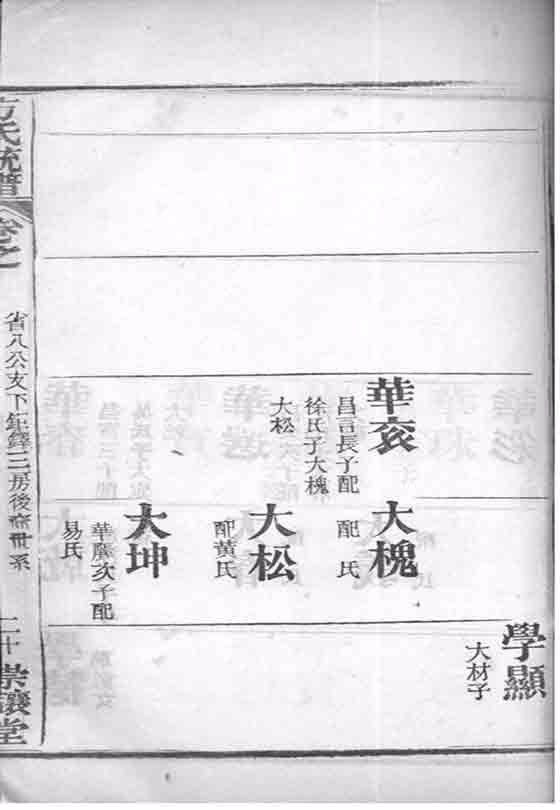 華衮
昌言長子配
徐氏子大槐
大松
大槐
配 氏
大松
配黃氏
大坤
華廣次子配
易氏
學顯
大材子
方氏統譜
卷之
省八公支下鉅鐸三房後裔世系
二十
崇讓堂